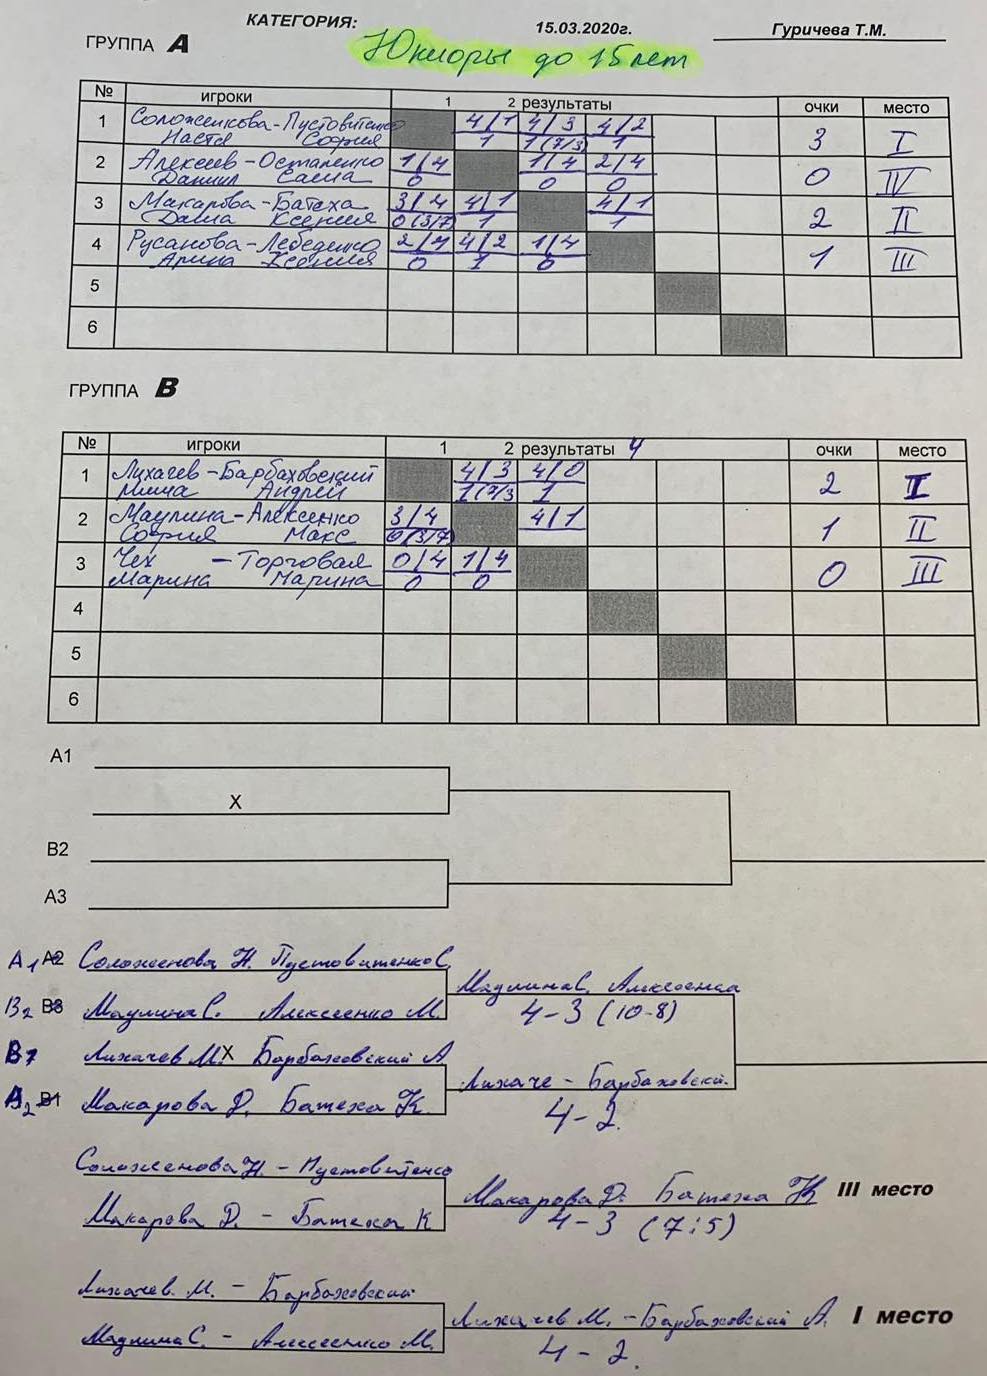 КАТЕГОРИЯ: 15.03.2020г. Гуричева Т.М.
ГРУППА А Юниоры до 15 лет
№ игроки 1 2 результаты очки место
1 Соложенкова-Пустовитенко 4/1 4/3 4/2 3 I
Настя София 1 1(7/3) 1
2 Алексеев-Остапенко 1/4 1/4 2/4 0 IV
Даниил Саша 0 0 0
3 Макарова-Батеха 3/4 4/1 4/1 2 II
Даша Ксения 0(3/7) 1 1
4 Русанова-Лебеденко 2/4 4/2 1/4 1 III
Арина Ксения 0 1 0
5
6
ГРУППА В
№ игроки 1 2 результаты 4 очки место
1 Лихачев-Барбаховский 4/3 4/0 2 I
Миша Андрей 1(7/3 1
2 Маулина-Алексенко 3/4 4/1 1 II
София Макс 0(3/7)
3 Чех - Торговая 0/4 1/4 0 III
Марина Марина 0 0
4
5
6
А1
X
В2
А3
А1 А2 Соложенова Н. Пустовитенко С.
Маулина С. Алексеенко
В2 В3 Маулина С. Алексеенко М. 4-3 (10-8)
В1 Лихачев М. X Барбаховский А
Лихаче - Барбаховски.
А2 В1 Макарова Д. Батеха К 4-2.
Соложенова Н. - Пустовитенко
Макарова Д. Батеха К III место
Макарова Д. - Батеха К 4-3 (7:5)
Лихачев. М. - Барбаховский
Лихачев М. - Барбаховский А. I место
Маулина С. - Алексеенко М. 4-2.